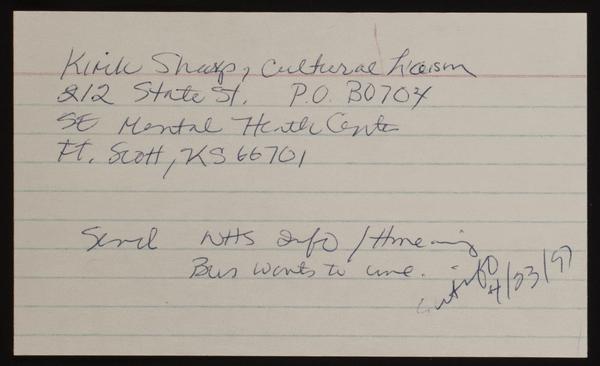 Kirk Sharp, Cultural Liaison
212 State St. P.O. BO704
SE Mental Health Center
Ft. Scott, KS 66701
Send NHS Info / Homecoming
Bus wants to come.
sent info
4/23/97